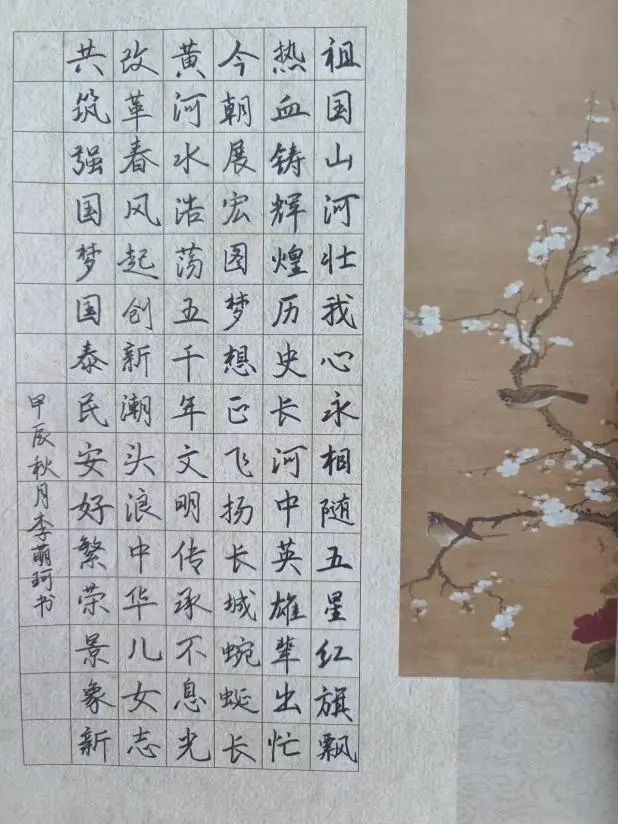 祖国山河壮我心永相随五星红旗飘
热血铸辉煌历史长河中英雄辈出忙
今朝展宏图梦想正飞扬长城蜿蜒长
黄河水浩荡五千年文明传承不息光
改革春风起创新潮头浪中华儿女志
共筑强国梦国泰民安好繁荣景象新
甲辰秋月李萌珂书